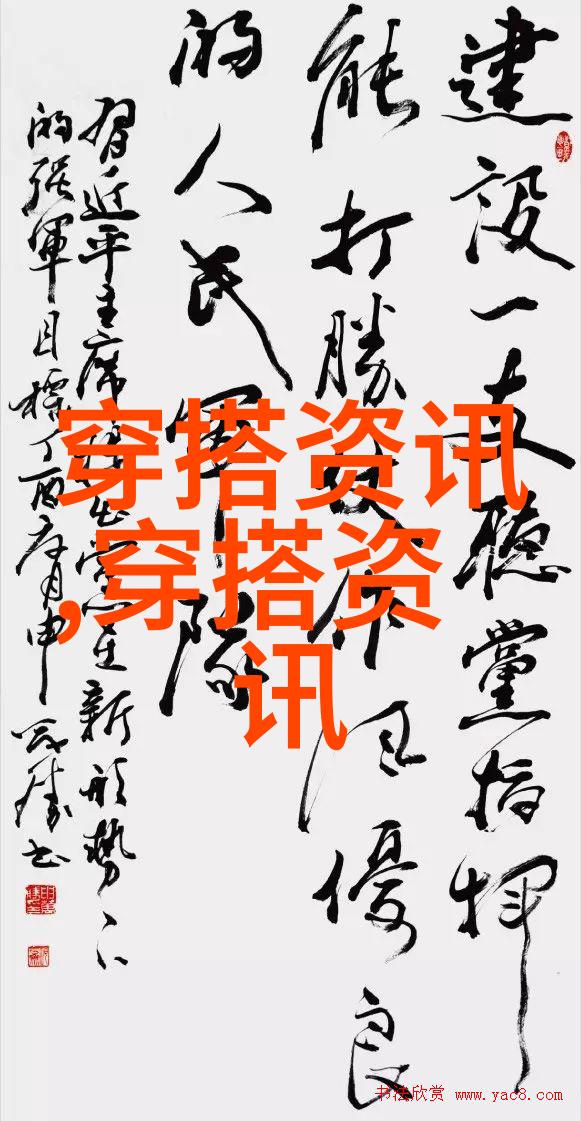 建設一支聽黨指揮
能打勝仗作风優良
的人民軍隊
習近平主席提出黨在新形勢下
的强軍目標丁酉
穿搭资讯
,穿搭资
讯
书法欣赏 www.yac8.com